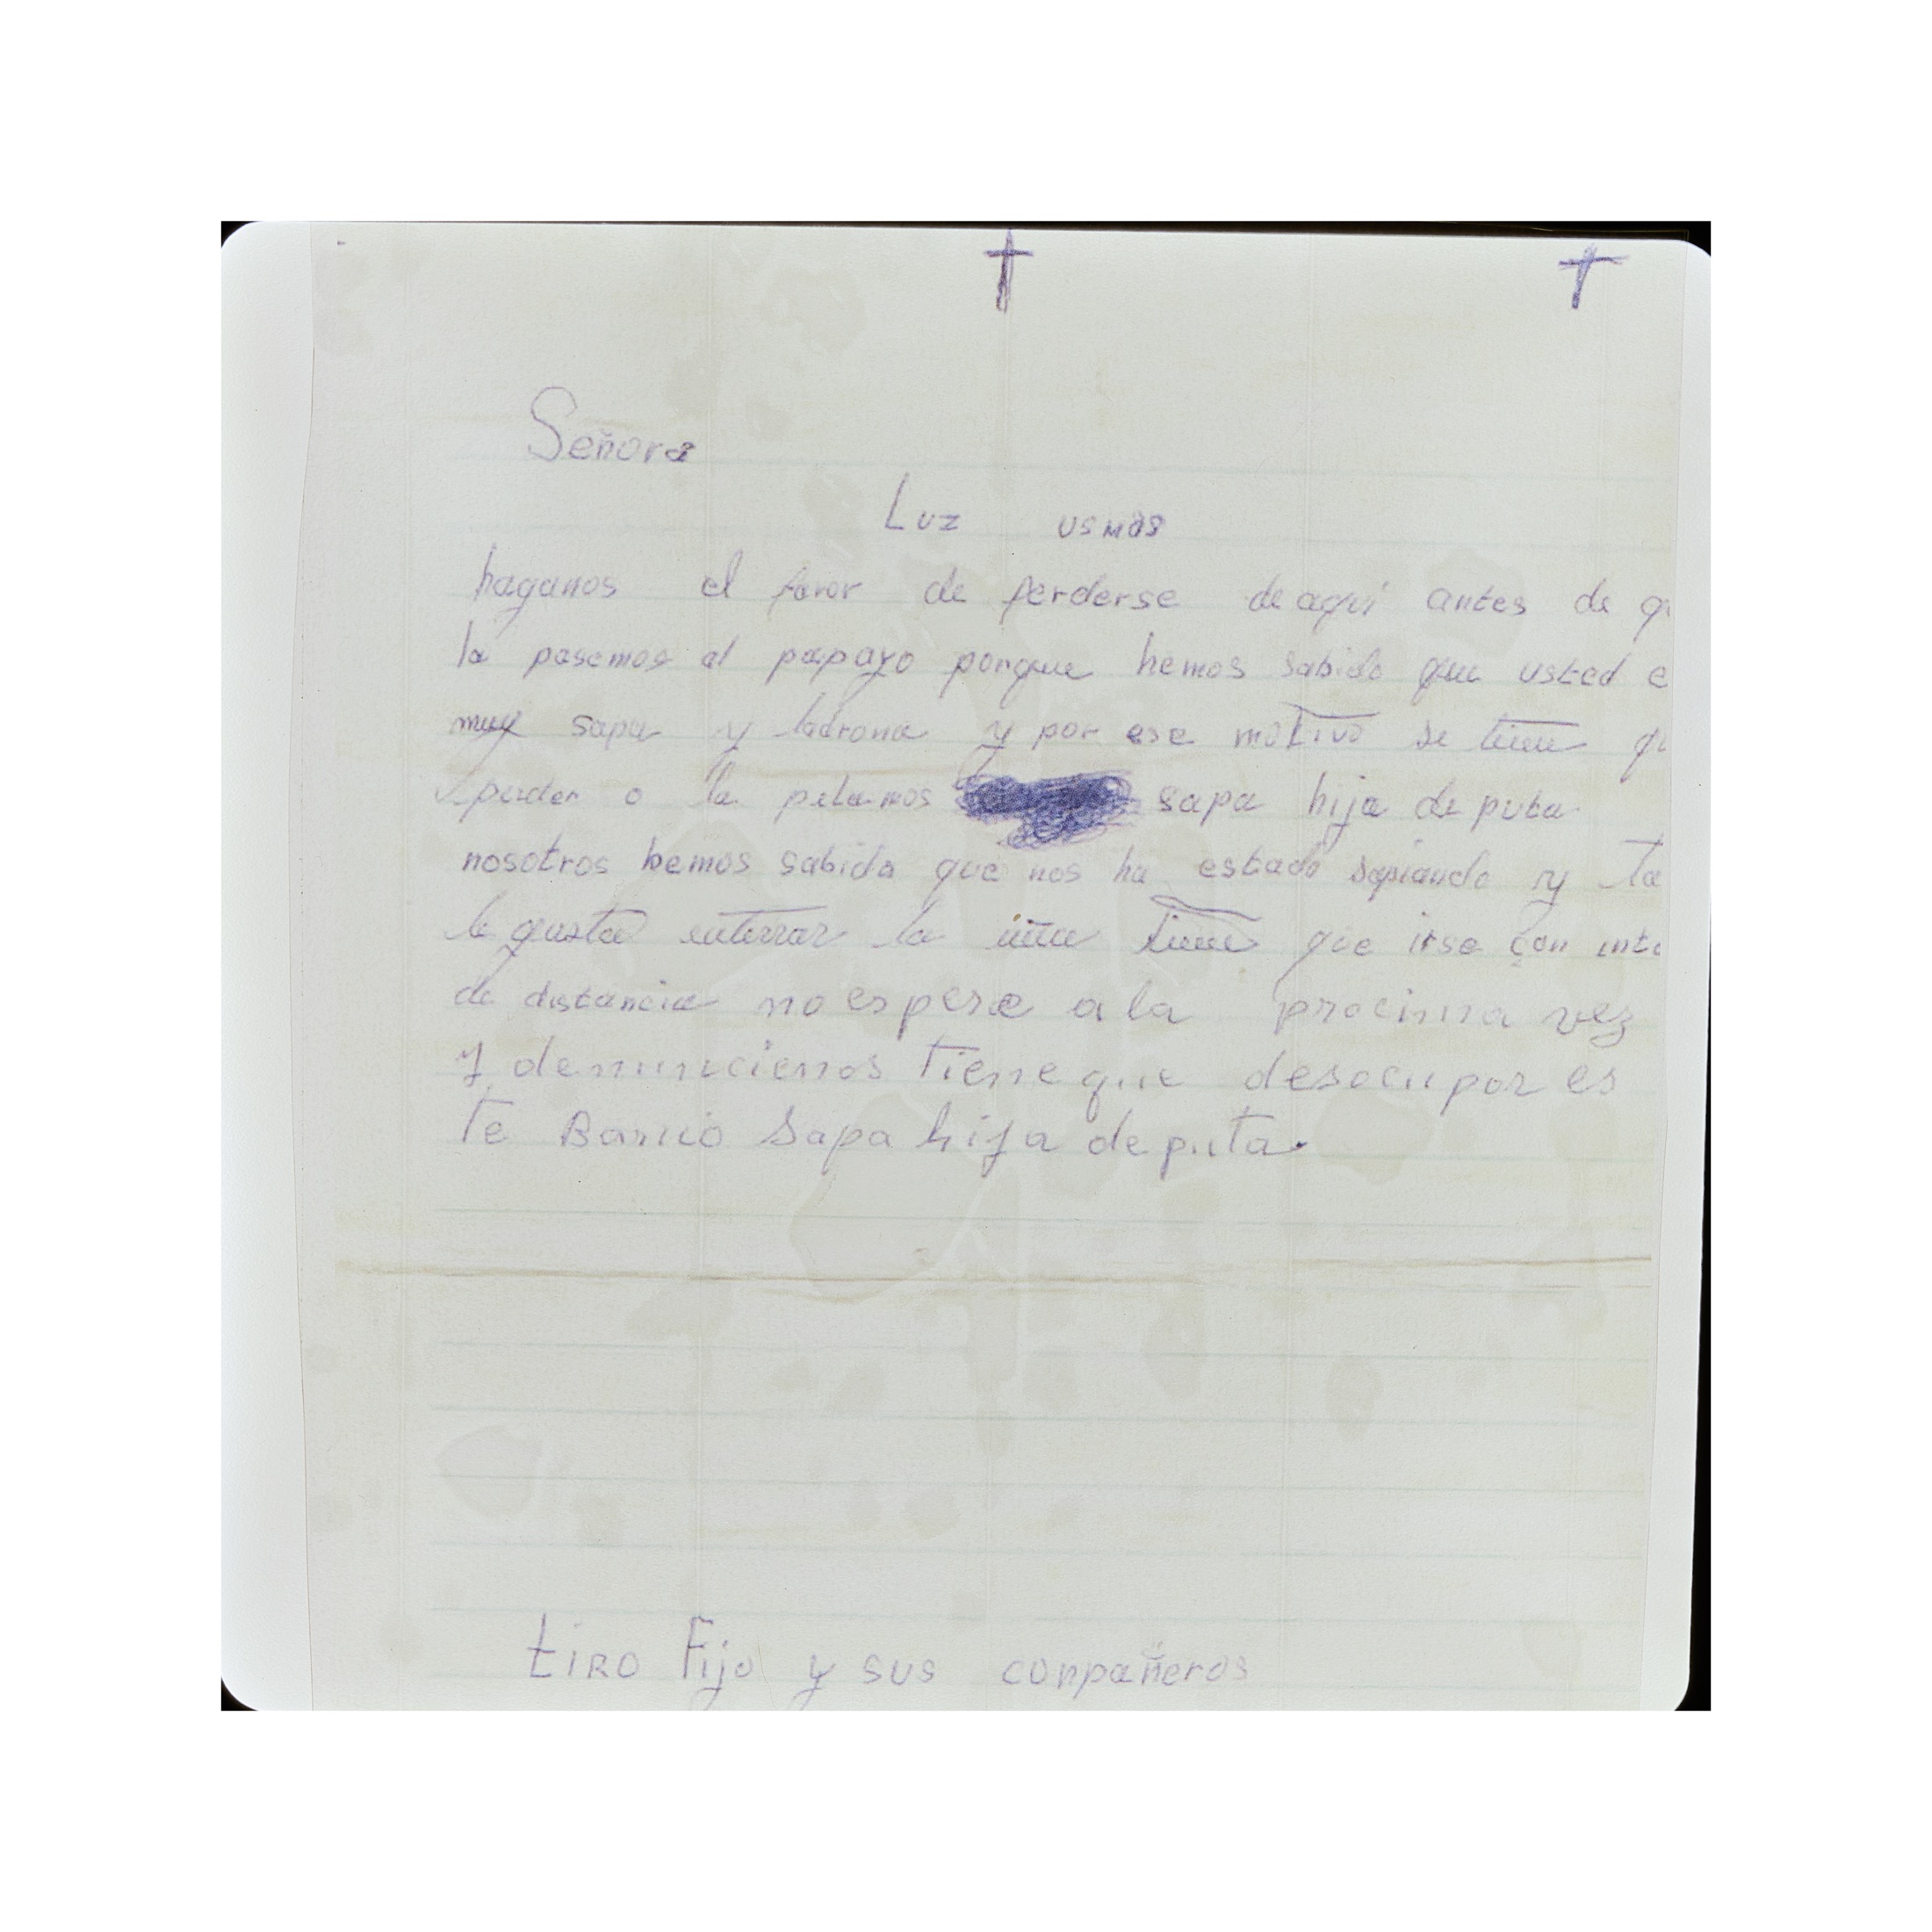 Señora
Luz usmas
haganos el favor de perderse de aqui antes de
la pasemos al papayo porque hemos sabido que usted
muy sapa y ladrona y por ese motivo se tiene
perder o la pelamos sapa hija de puta
nosotros hemos sabido que nos ha estado sapiando y
le gusta enterrar la uña tiene que irse con
de distancia no espere a la procima vez
y denuncienos tiene que desocupar es
te Barrio sapa hija de puta.
tiro Fijo y sus conpañeros